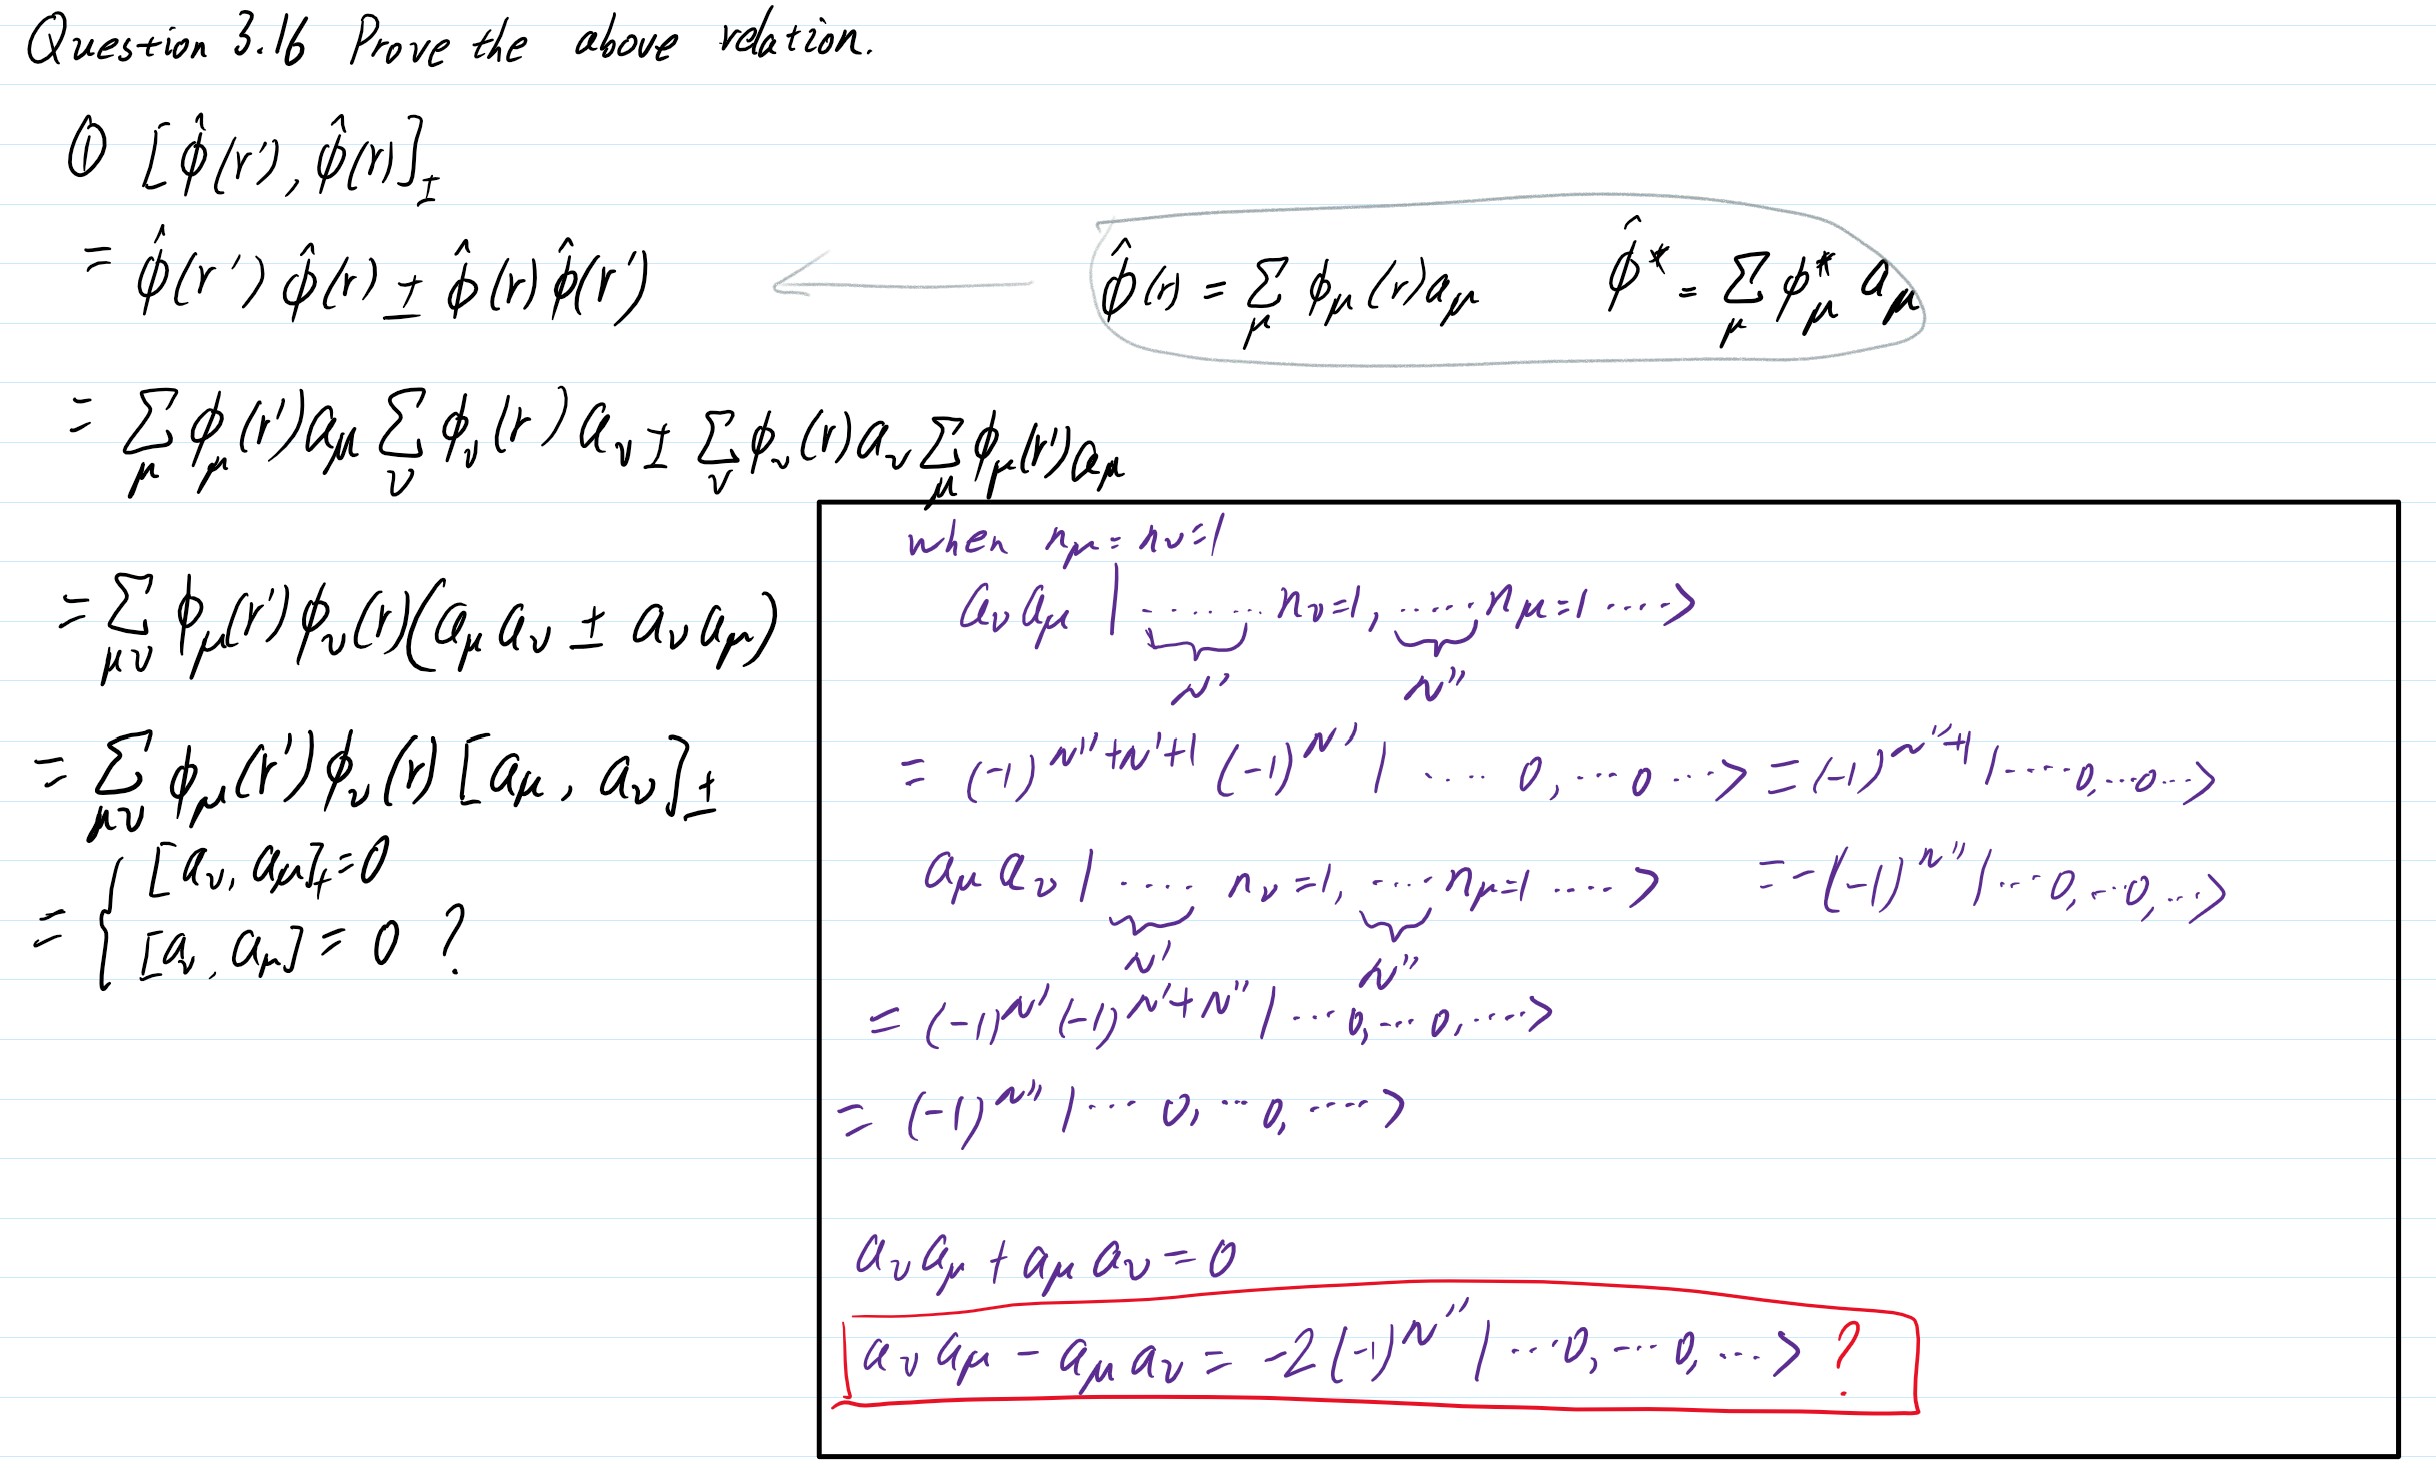 Question 3.16 Prove the above relation.
① [φ̂(r'), φ̂(r)]±
= φ̂(r') φ̂(r) ± φ̂(r) φ̂(r')
φ̂(r) = Σ_μ φ_μ(r) a_μ φ̂* = Σ_μ φ*_μ a_μ
= Σ_μ φ_μ(r') a_μ Σ_ν φ_ν(r) a_ν ± Σ_ν φ_ν(r) a_ν Σ_μ φ_μ(r') a_μ
= Σ_μν φ_μ(r') φ_ν(r) (a_μ a_ν ± a_ν a_μ)
= Σ_μν φ_μ(r') φ_ν(r) [a_μ, a_ν]±
= { [a_ν, a_μ]₊ = 0
[a_ν, a_μ] = 0 ?
when n_μ = n_ν = 1
a_ν a_μ | ...... n_ν=1, ..... n_μ=1 ....>
N' N''
= (-1)^{N''+N'+1} (-1)^{N'} | .... 0, ...0 ...> = (-1)^{N''+1} |.....0,...0...>
a_μ a_ν | .... n_ν=1, .... n_μ=1 ....> = -(-1)^{N''} |...0,...0,...>
N' N''
= (-1)^{N'} (-1)^{N'+N''} | ...0,...0,....>
= (-1)^{N''} |... 0, ...0, ....>
a_ν a_μ + a_μ a_ν = 0
a_ν a_μ - a_μ a_ν = -2(-1)^{N''} | ...0, ...0, ...> ?